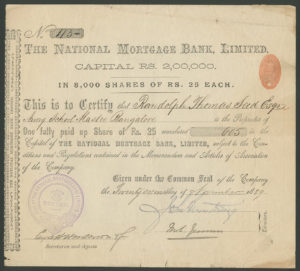 No. 115
THE NATIONAL MORTGAGE BANK, LIMITED.
CAPITAL RS. 2,00,000.
IN 8,000 SHARES OF RS. 25 EACH.
This is to Certify that Randolph Thomas
Army School Master Bangalore is the Proprietor of
One fully paid up Share of Rs. 25 numbered 665 in the
Capital of THE NATIONAL MORTGAGE BANK, LIMITED, subject to the Con-
ditions and Regulations contained in the Memorandum and Articles of Association
of the Company.
Given under the Common Seal of the Company
the Twenty
Secretaries and Agents